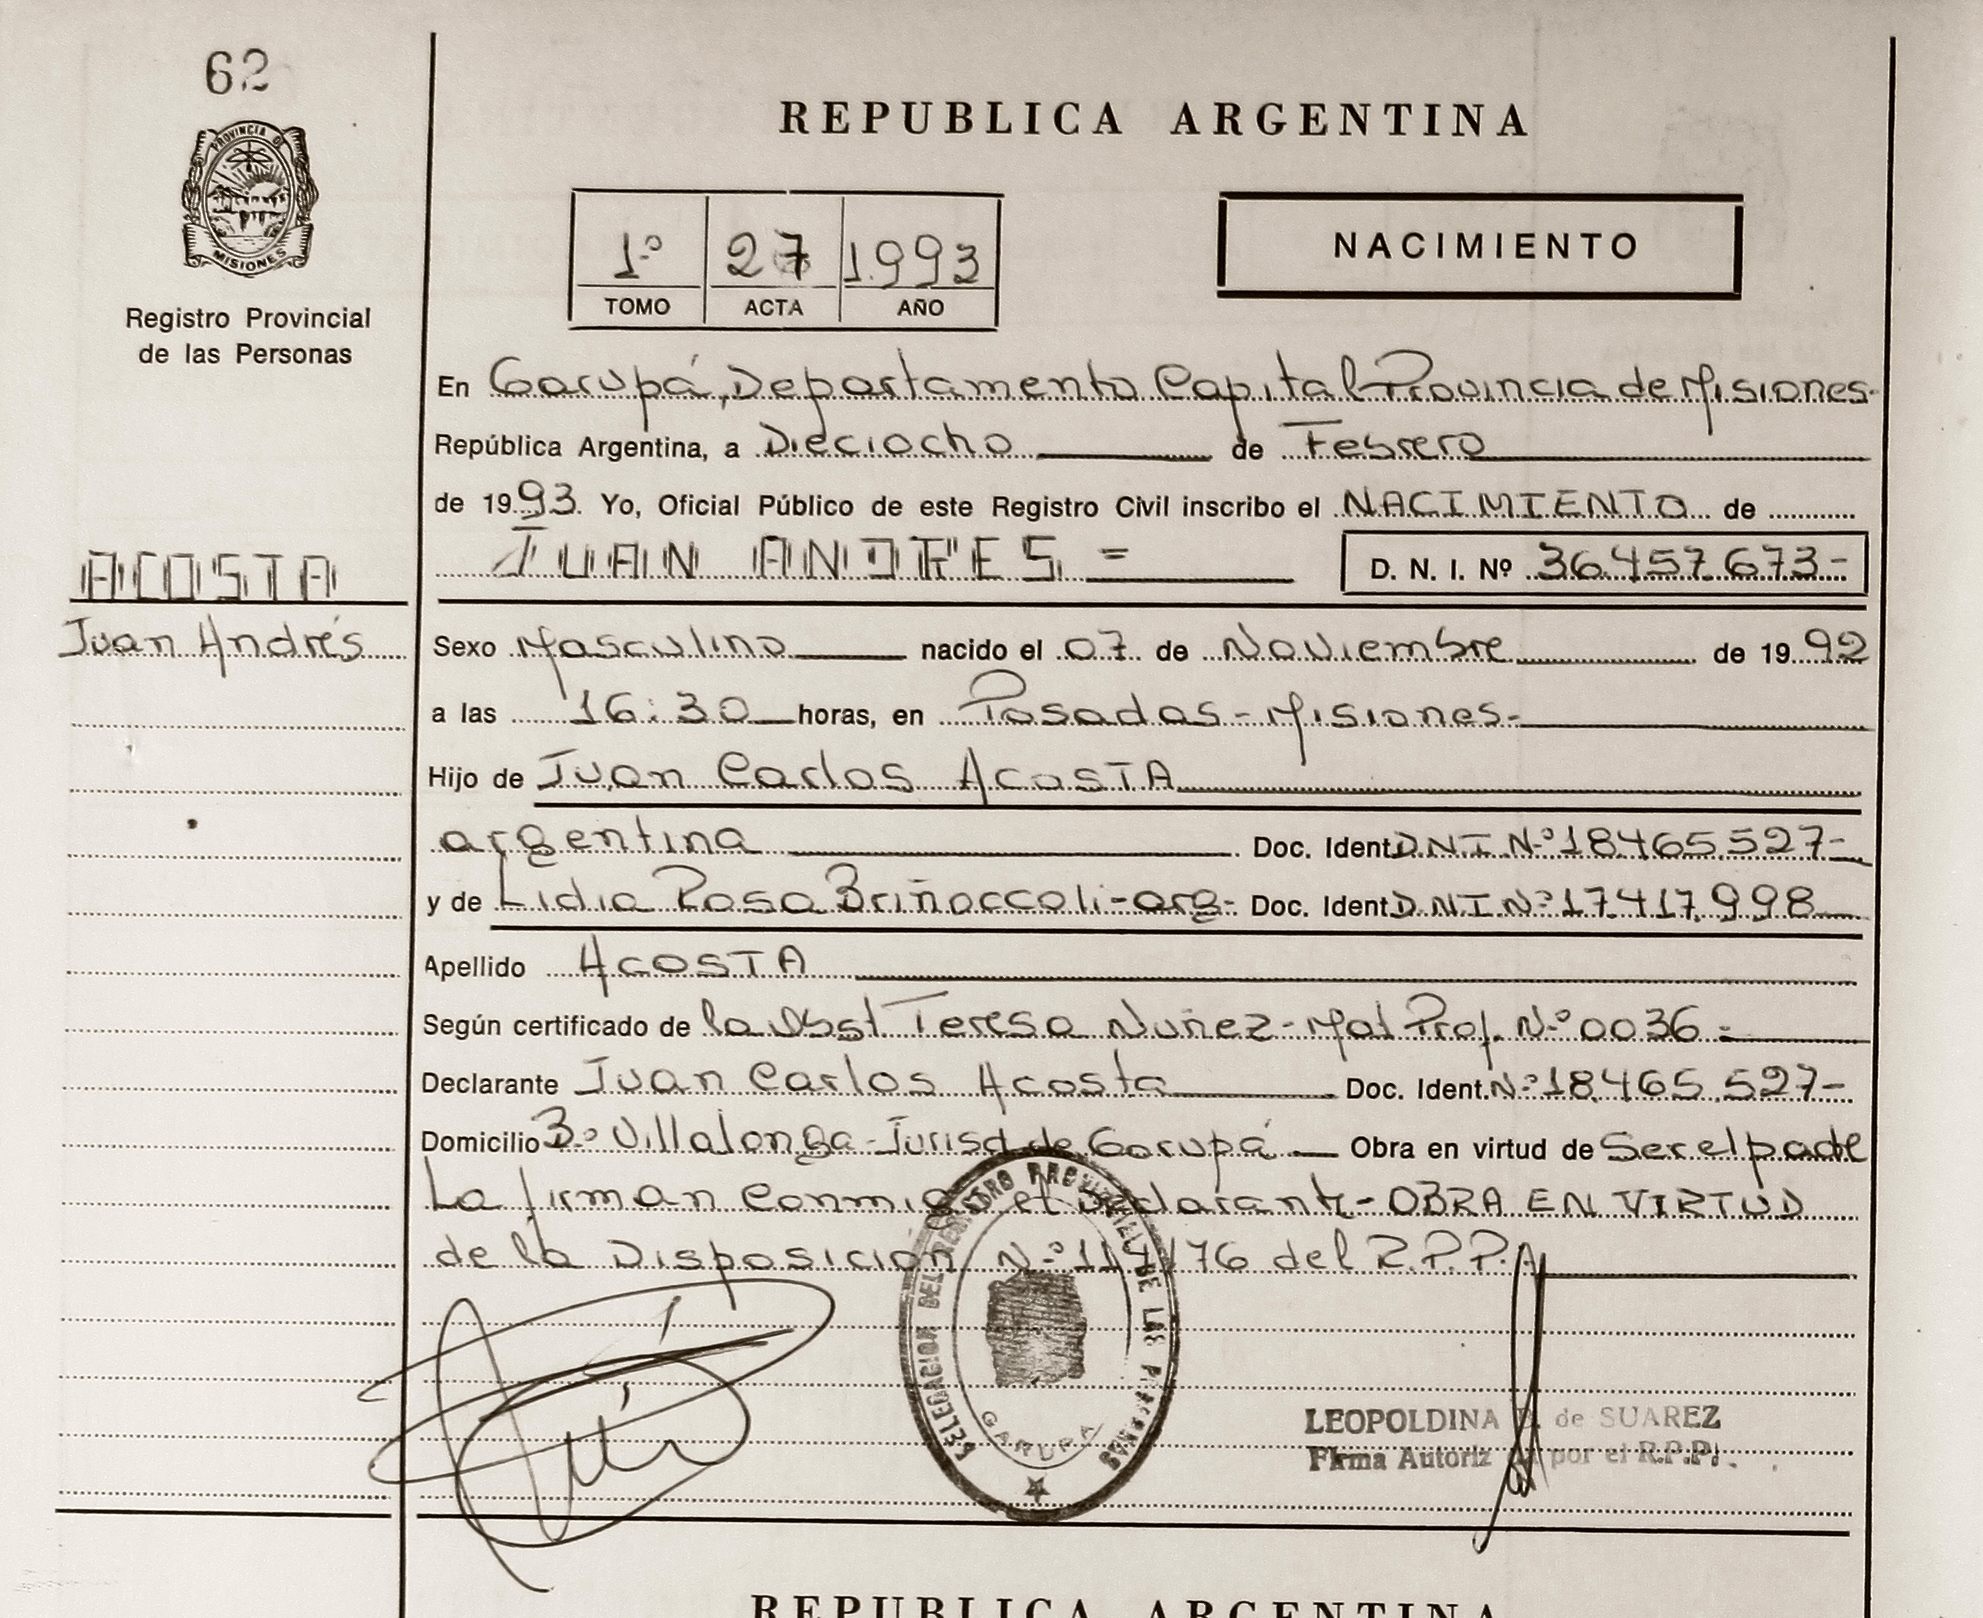 62
PROVINCIA DE
MISIONES
Registro Provincial
de las Personas
ACOSTA
Juan Andrés
REPUBLICA ARGENTINA
1º 27 1.993
TOMO ACTA AÑO
NACIMIENTO
En Garupá, Departamento Capital Provincia de Misiones-
República Argentina, a Dieciocho de Febrero
de 1993. Yo, Oficial Público de este Registro Civil inscribo el NACIMIENTO de
JUAN ANDRES = D. N. I. Nº 36.457.673-
Sexo Masculino nacido el 07 de Noviembre de 1992
a las 16:30 horas, en Posadas-Misiones-
Hijo de Juan Carlos Acosta
argentina Doc. Ident. D.N.I.Nº 18.465.527-
y de Lidia Rosa Briñoccoli-arg- Doc. Ident. D.N.I.Nº 17.417.998
Apellido ACOSTA
Según certificado de la Obst. Teresa Nuñez-Mat Prof. Nº 0036-
Declarante Juan Carlos Acosta Doc. Ident. Nº 18.465.527-
Domicilio Bº Villalonga-Jurisd de Garupá Obra en virtud de Ser el padre
La firman conmigo el Declarante-OBRA EN VIRTUD
de la Disposición Nº 117/76 del R.P.P.
DELEGACION DEL REGISTRO PROVINCIAL DE LAS PERSONAS
GARUPA
LEOPOLDINA de SUAREZ
Firma Autoriz por el R.P.P.
REPUBLICA ARGENTINA